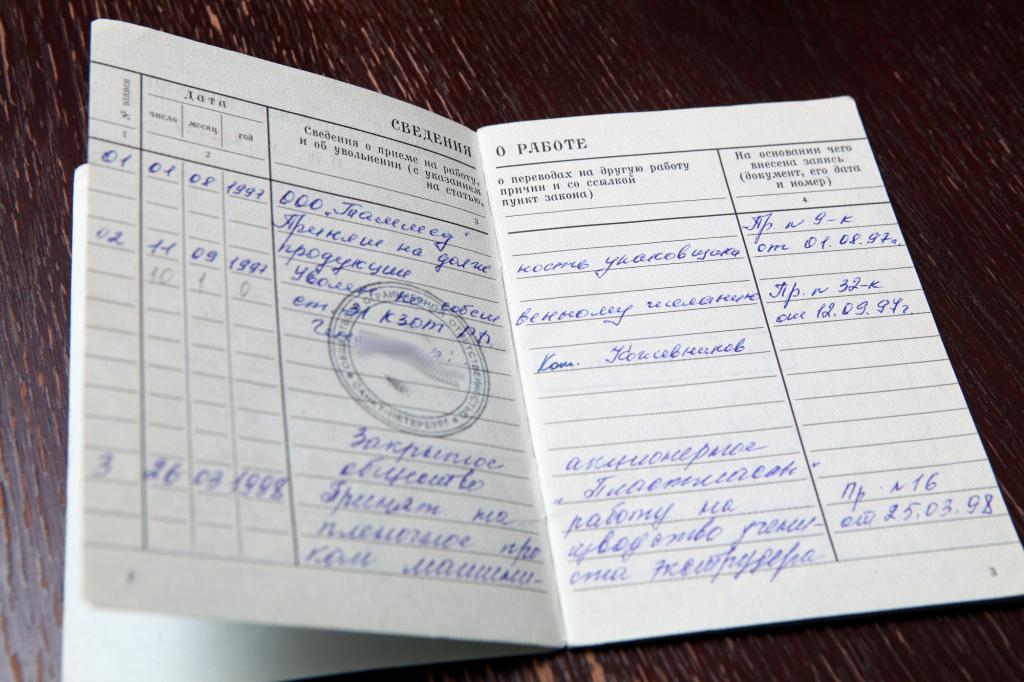 СВЕДЕНИЯ О РАБОТЕ
№ записи
Дата
число
месяц
год
Сведения о приеме на работу,
и об увольнении (с указанием
на статью,
о переводах на другую работу
причин и со ссылкой
пункт закона)
На основании чего
внесена запись
(документ, его дата
и номер)
1
2
3
4
01 01 08 1997 ООО "
Принят на долж- ность упаковщика Пр. № 9-к
продукции от 01.08.97г.
02 11 09 1997 Уволен по собст венному желанию Пр. № 32-к
ст 31 КЗОТ РФ от 12.09.97г.
10 1 0
Кожевников
САНКТ-ПЕТЕРБУРГ
Закрытое акционерное
общество "Пластмасан"
3 26 03 1998 Принят на работу на Пр. № 16
пленочное про изводство учени- от 25.03.98
ком машини- ста экструдера
3